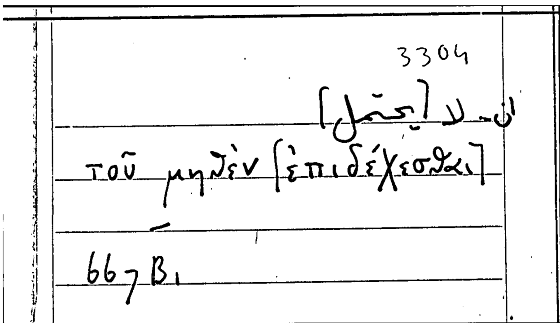 3304
ان - لا [يحتمل]
τοῦ μηθὲν [ἐπιδέχεσθαι]
667 B,